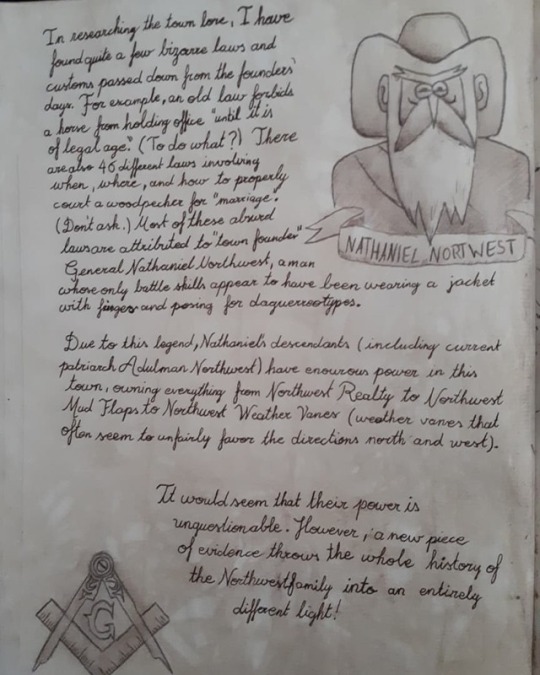 In researching the town lore, I have
found quite a few bizarre laws and
customs passed down from the founders'
days. For example, an old law forbids
a horse from holding office "until it is
of legal age." (To do what?) There
are also 46 different laws involving
when, where, and how to properly
court a woodpecker for "marriage."
(Don't ask.) Most of these absurd
laws are attributed to "town founder"
General Nathaniel Northwest, a man
whose only battle skills appear to have been wearing a jacket
with finges and posing for daguerreotypes.
NATHANIEL NORTWEST
Due to this legend, Nathaniel's descendants (including current
patriarch Adulman Northwest) have enourous power in this
town, owning everything from Northwest Realty to Northwest
Mud Flaps to Northwest Weather Vanes (weather vanes that
often seem to unfairly favor the directions north and west).
It would seem that their power is
unquestionable. However, a new piece
of evidence throws the whole history of
the Northwest family into an entirely
different light!
G